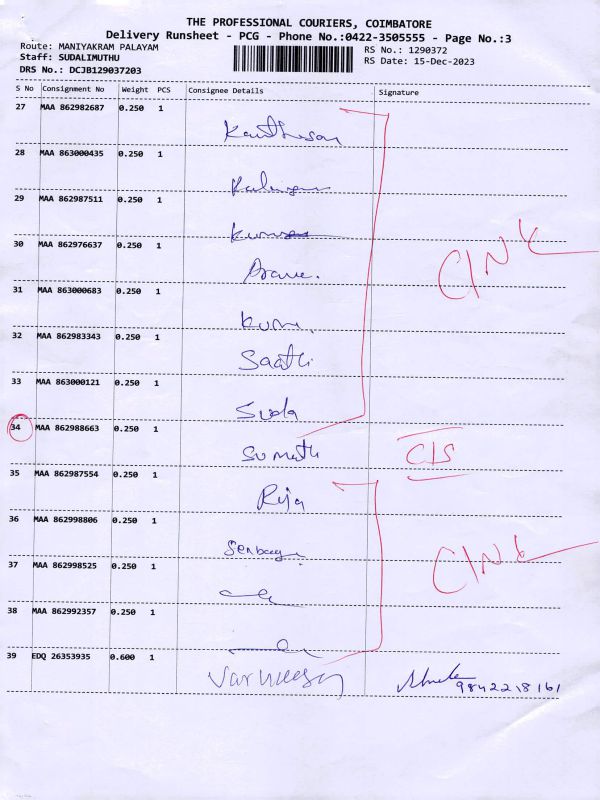 THE PROFESSIONAL COURIERS, COIMBATORE
Delivery Runsheet - PCG - Phone No.:0422-3505555 - Page No.:3
Route: MANIYAKRAM PALAYAM
RS No.: 1290372
Staff: SUDALIMUTHU
RS Date: 15-Dec-2023
DRS No.: DCJB129037203
S No Consignment No Weight PCS Consignee Details Signature
27 MAA 862982687 0.250 1
28 MAA 863000435 0.250 1
29 MAA 862987511 0.250 1
30 MAA 862976637 0.250 1
31 MAA 863000683 0.250 1
32 MAA 862983343 0.250 1
Saathi
33 MAA 863000121 0.250 1
Suda
34 MAA 862988663 0.250 1
Sumathi
35 MAA 862987554 0.250 1
Raja
36 MAA 862998806 0.250 1
37 MAA 862998525 0.250 1
38 MAA 862992357 0.250 1
39 EDQ 26353935 0.600 1
9842218161